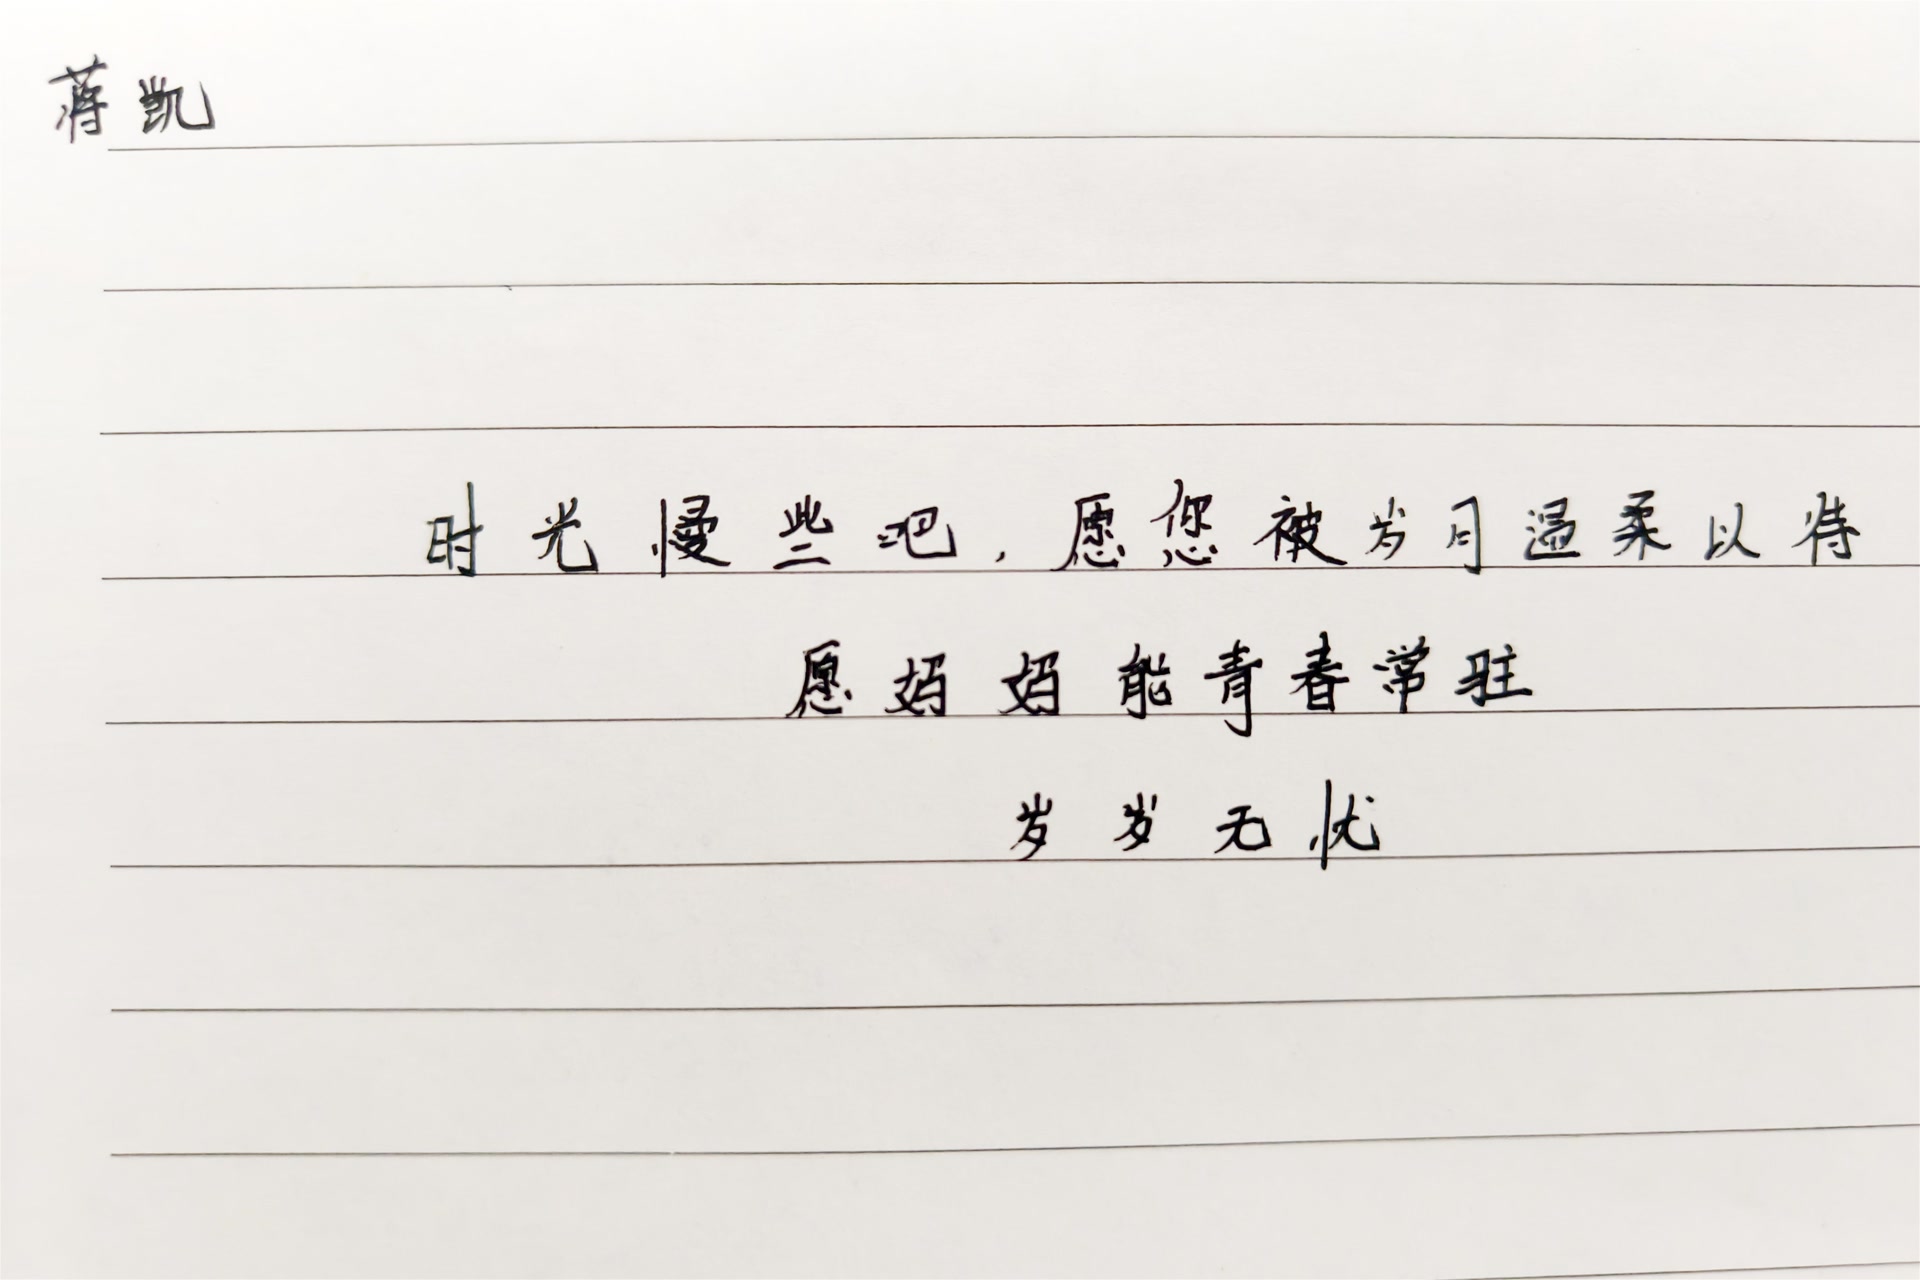 蒋凯
时光慢些吧，愿您被岁月温柔以待
愿妈妈能青春常驻
岁岁无忧